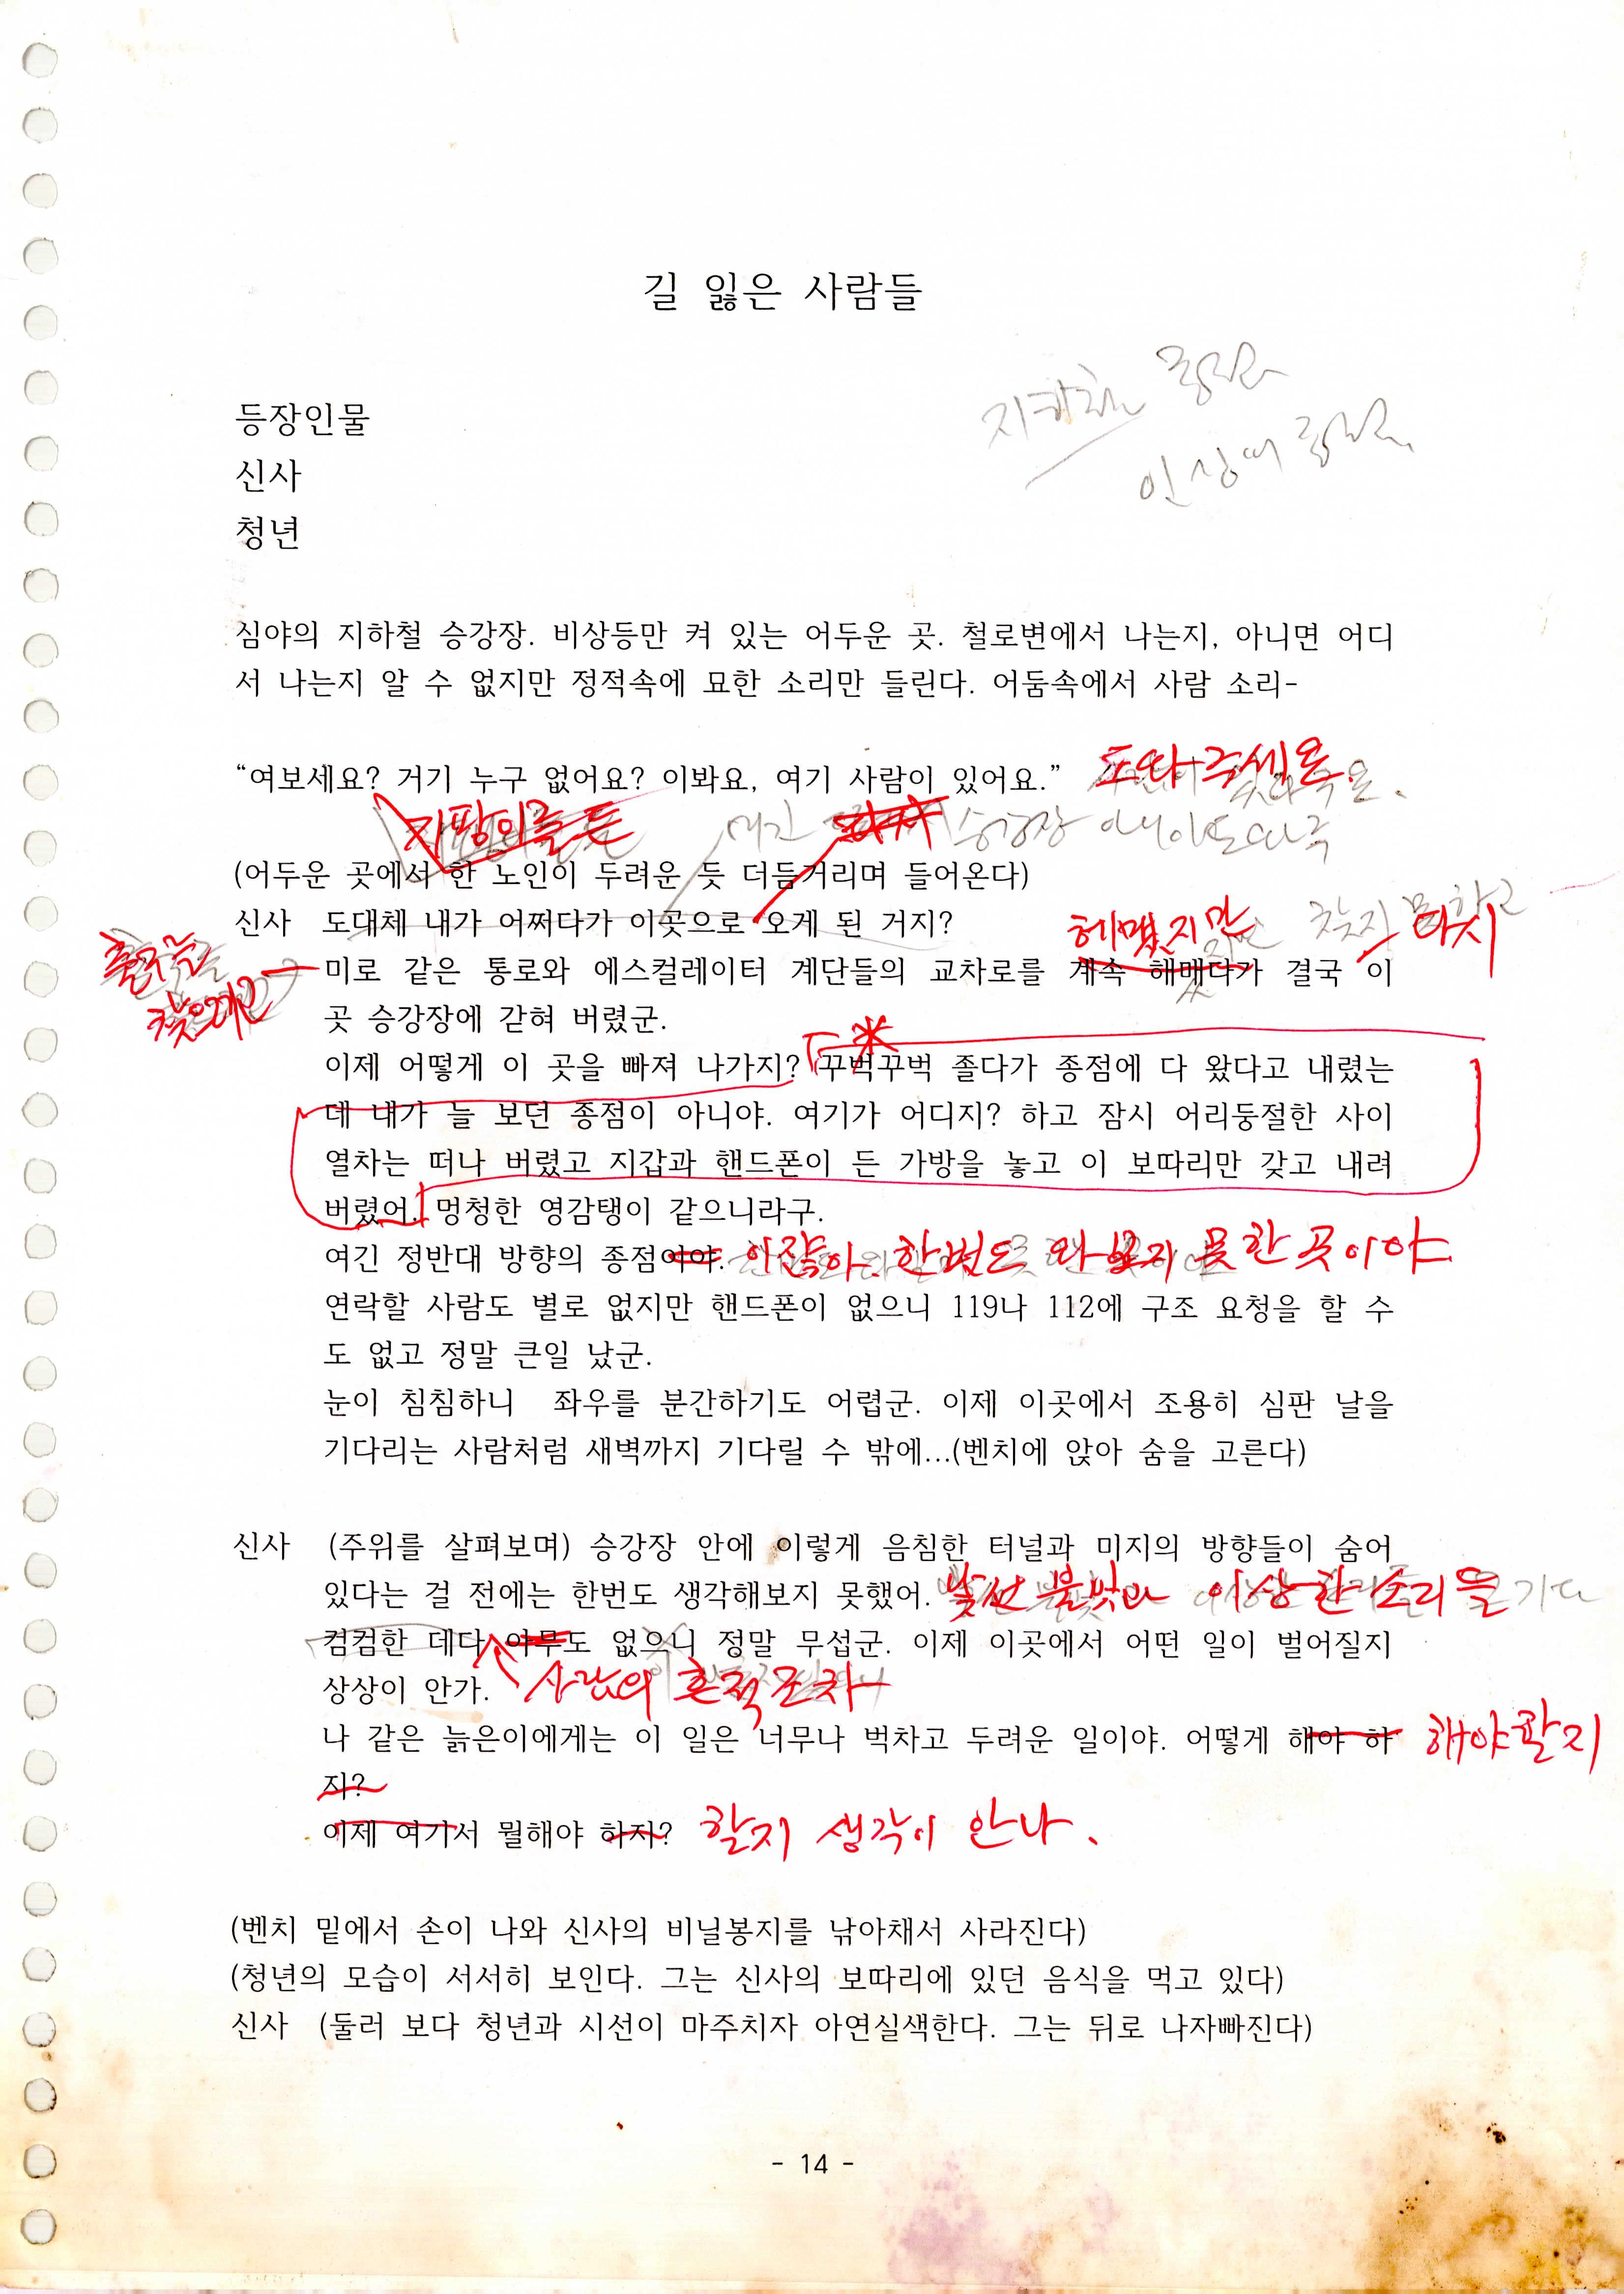 길 잃은 사람들
등장인물
신사
청년
심야의 지하철 승강장. 비상등만 켜 있는 어두운 곳. 철로변에서 나는지, 아니면 어디
서 나는지 알 수 없지만 정적속에 묘한 소리만 들린다. 어둠속에서 사람 소리-
“여보세요? 거기 누구 없어요? 이봐요, 여기 사람이 있어요.” 도와주세요.
지팡이를 든
승강장
(어두운 곳에서 한 노인이 두려운 듯 더듬거리며 들어온다)
신사 도대체 내가 어쩌다가 이곳으로 오게 된 거지?
헤맸지만 찾지 못하고 다시
출구를
찾으려고
미로 같은 통로와 에스컬레이터 계단들의 교차로를 계속 해맸다가 결국 이
곳 승강장에 갇혀 버렸군.
이제 어떻게 이 곳을 빠져 나가지? 꾸벅꾸벅 졸다가 종점에 다 왔다고 내렸는
데 내가 늘 보던 종점이 아니야. 여기가 어디지? 하고 잠시 어리둥절한 사이
열차는 떠나 버렸고 지갑과 핸드폰이 든 가방을 놓고 이 보따리만 갖고 내려
버렸어. 멍청한 영감탱이 같으니라구.
여긴 정반대 방향의 종점이야. 이잖아. 한번도 와보지 못한 곳이야
연락할 사람도 별로 없지만 핸드폰이 없으니 119나 112에 구조 요청을 할 수
도 없고 정말 큰일 났군.
눈이 침침하니 좌우를 분간하기도 어렵군. 이제 이곳에서 조용히 심판 날을
기다리는 사람처럼 새벽까지 기다릴 수 밖에...(벤치에 앉아 숨을 고른다)
신사 (주위를 살펴보며) 승강장 안에 이렇게 음침한 터널과 미지의 방향들이 숨어
있다는 걸 전에는 한번도 생각해보지 못했어. 낯선 불빛과 이상한 소리들
컴컴한 데다 아무도 없으니 정말 무섭군. 이제 이곳에서 어떤 일이 벌어질지
상상이 안가. 사람의 흔적조차
나 같은 늙은이에게는 이 일은 너무나 벅차고 두려운 일이야. 어떻게 해야 하 해야할지
지?
이제 여기서 뭘해야 하지? 할지 생각이 안나.
(벤치 밑에서 손이 나와 신사의 비닐봉지를 낚아채서 사라진다)
(청년의 모습이 서서히 보인다. 그는 신사의 보따리에 있던 음식을 먹고 있다)
신사 (둘러 보다 청년과 시선이 마주치자 아연실색한다. 그는 뒤로 나자빠진다)
- 14 -